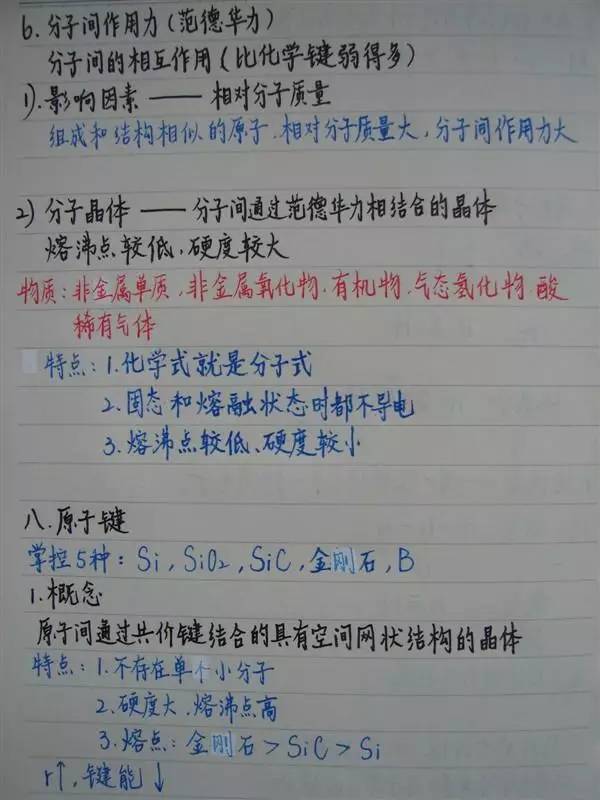 6.分子间作用力(范德华力)
分子间的相互作用(比化学键弱得多)
1).影响因素 —— 相对分子质量
组成和结构相似的原子.相对分子质量大,分子间作用力大
2) 分子晶体 —— 分子间通过范德华力相结合的晶体
熔沸点较低、硬度较大
物质:非金属单质,非金属氧化物.有机物.气态氢化物 酸
稀有气体
特点:1.化学式就是分子式
2.固态和熔融状态时都不导电
3.熔沸点较低、硬度较小
八.原子键
掌控5种:Si,SiO2,SiC,金刚石,B
1.概念
原子间通过共价键结合的具有空间网状结构的晶体
特点:1.不存在单个小分子
2.硬度大.熔沸点高
3.熔点:金刚石>SiC>Si
r↑,键能↓